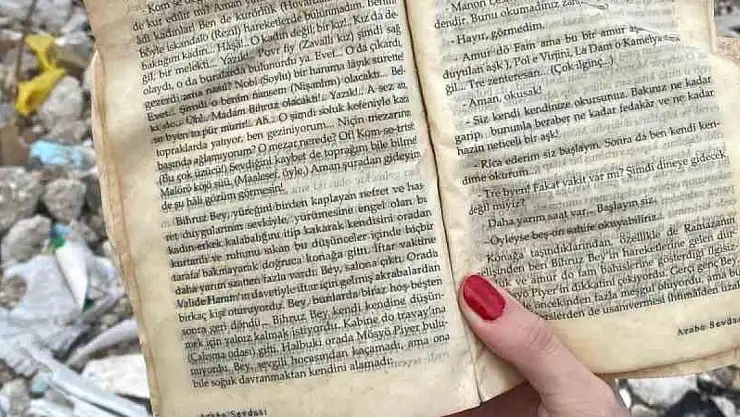 kadınlar! Ben de kudurmuş
böyle iskandalo (Rezil) hareketlerde bulunmadım. Kız da de-
baktığım kadın... Hâşâ!.. O kadın değil, bir kız!.. Kız da de-
ğil, bir melekti... Yazık!.. Povr fiy (Zavallı kız) şimdi sağ
olaydı, o da buralarda bulunurdu ya. Evet... O da çıkardı,
gezerdi ama nasıl? Nobl (Soylu) bir haruma lâyık surette!
Evet... Şimdi o benim nansem (Nişanlım) olacaktı... Bel-
ki de... Oh!.. Madam Bihruz olacaktı!.. Yazık!.. A sez an,
se byen ta pür murir!.. Ah... O şimdi soluk kefeniyle kara
topraklarda yatıyor, ben geziniyorum... Niçin mezarının
başında ağlamıyorum? O mezar nerede? Of! Kom se trist!
(Bu çok üzücü!) Sevdiğini kaybet de toprağını bile bilme!
Malörö köjö süi, (Maalesef, öyle.) Aman şuradan gideyim
de şu hâli gözüm görmesin!
Bihruz Bey, yüreğini birden kaplayan nefret ve haş-
ret duygularının sevkiyle, yürümesine engel olan bu
kadın-erkek kalabalığını itip kakarak kendisini oradan
kurtardı ve ruhunu sıkan bu düşünceler içinde hiçbir
tarafa bakmayarak doğruca konağa gitti. İftar vaktine
daha yarım saatten fazla vardı. Bey, salona çıktı. Orada
Valide Hanım'ın davetiyle iftar için gelmiş akrabalardan
birkaç kişi oturuyordu. Bey, bunlarda biraz hoş-beşten
sonra geri döndü... Bihruz Bey, kendi kendine düşün-
mek için yalnız kalmak istiyordu. Kabine do travay'ına
(Çalışma odası) gitti. Halbuki orada Mösyö Piyer bulu-
nuyordu. Bey, sevgili hocasından kaçamadı, ama ona
bile soğuk davranmaktan kendini alamadı.
Araba Sevdası
dendir. Bunu okumadınız
- Hayır, görmedim.
- Amur dö Fam ama bu bir amur
duyulan aşk), Pol e Virjini, La Dam o Kamelya
ğil... Tre zenteresan... (Çok ilginç...)
- Aman, okusak!
- Siz kendi kendinize okursunuz. Bakınız ne kadar
garip, bununla beraber ne kadar fedakâr ve ne kadar
hazin neticeli bir aşk!
- Rica ederim siz başlayın. Sonra da ben kendi ken-
dime okurum...
- Tre byen! Fakat vakit var mı? Şimdi dineye gidecek
değil miyiz?
- Daha yarım saat var... Başlayın siz.
- Öyleyse beş-on sahife okuyabiliriz...
Konağa taşındıklarından, özellikle de Ramazanın
gelişinden beri Bihruz Bey'in hareketlerine gelen dur-
ve amur do fam bahislerine gösterdiği ilgisiz
Piyer'in dikkatini çekiyordu. Gerçi genç Bey
öncekinden fazla meşgul oluyordu, ama on
derslerden de usanıvermesi (ihtimalden uzak
Araba Sevdası